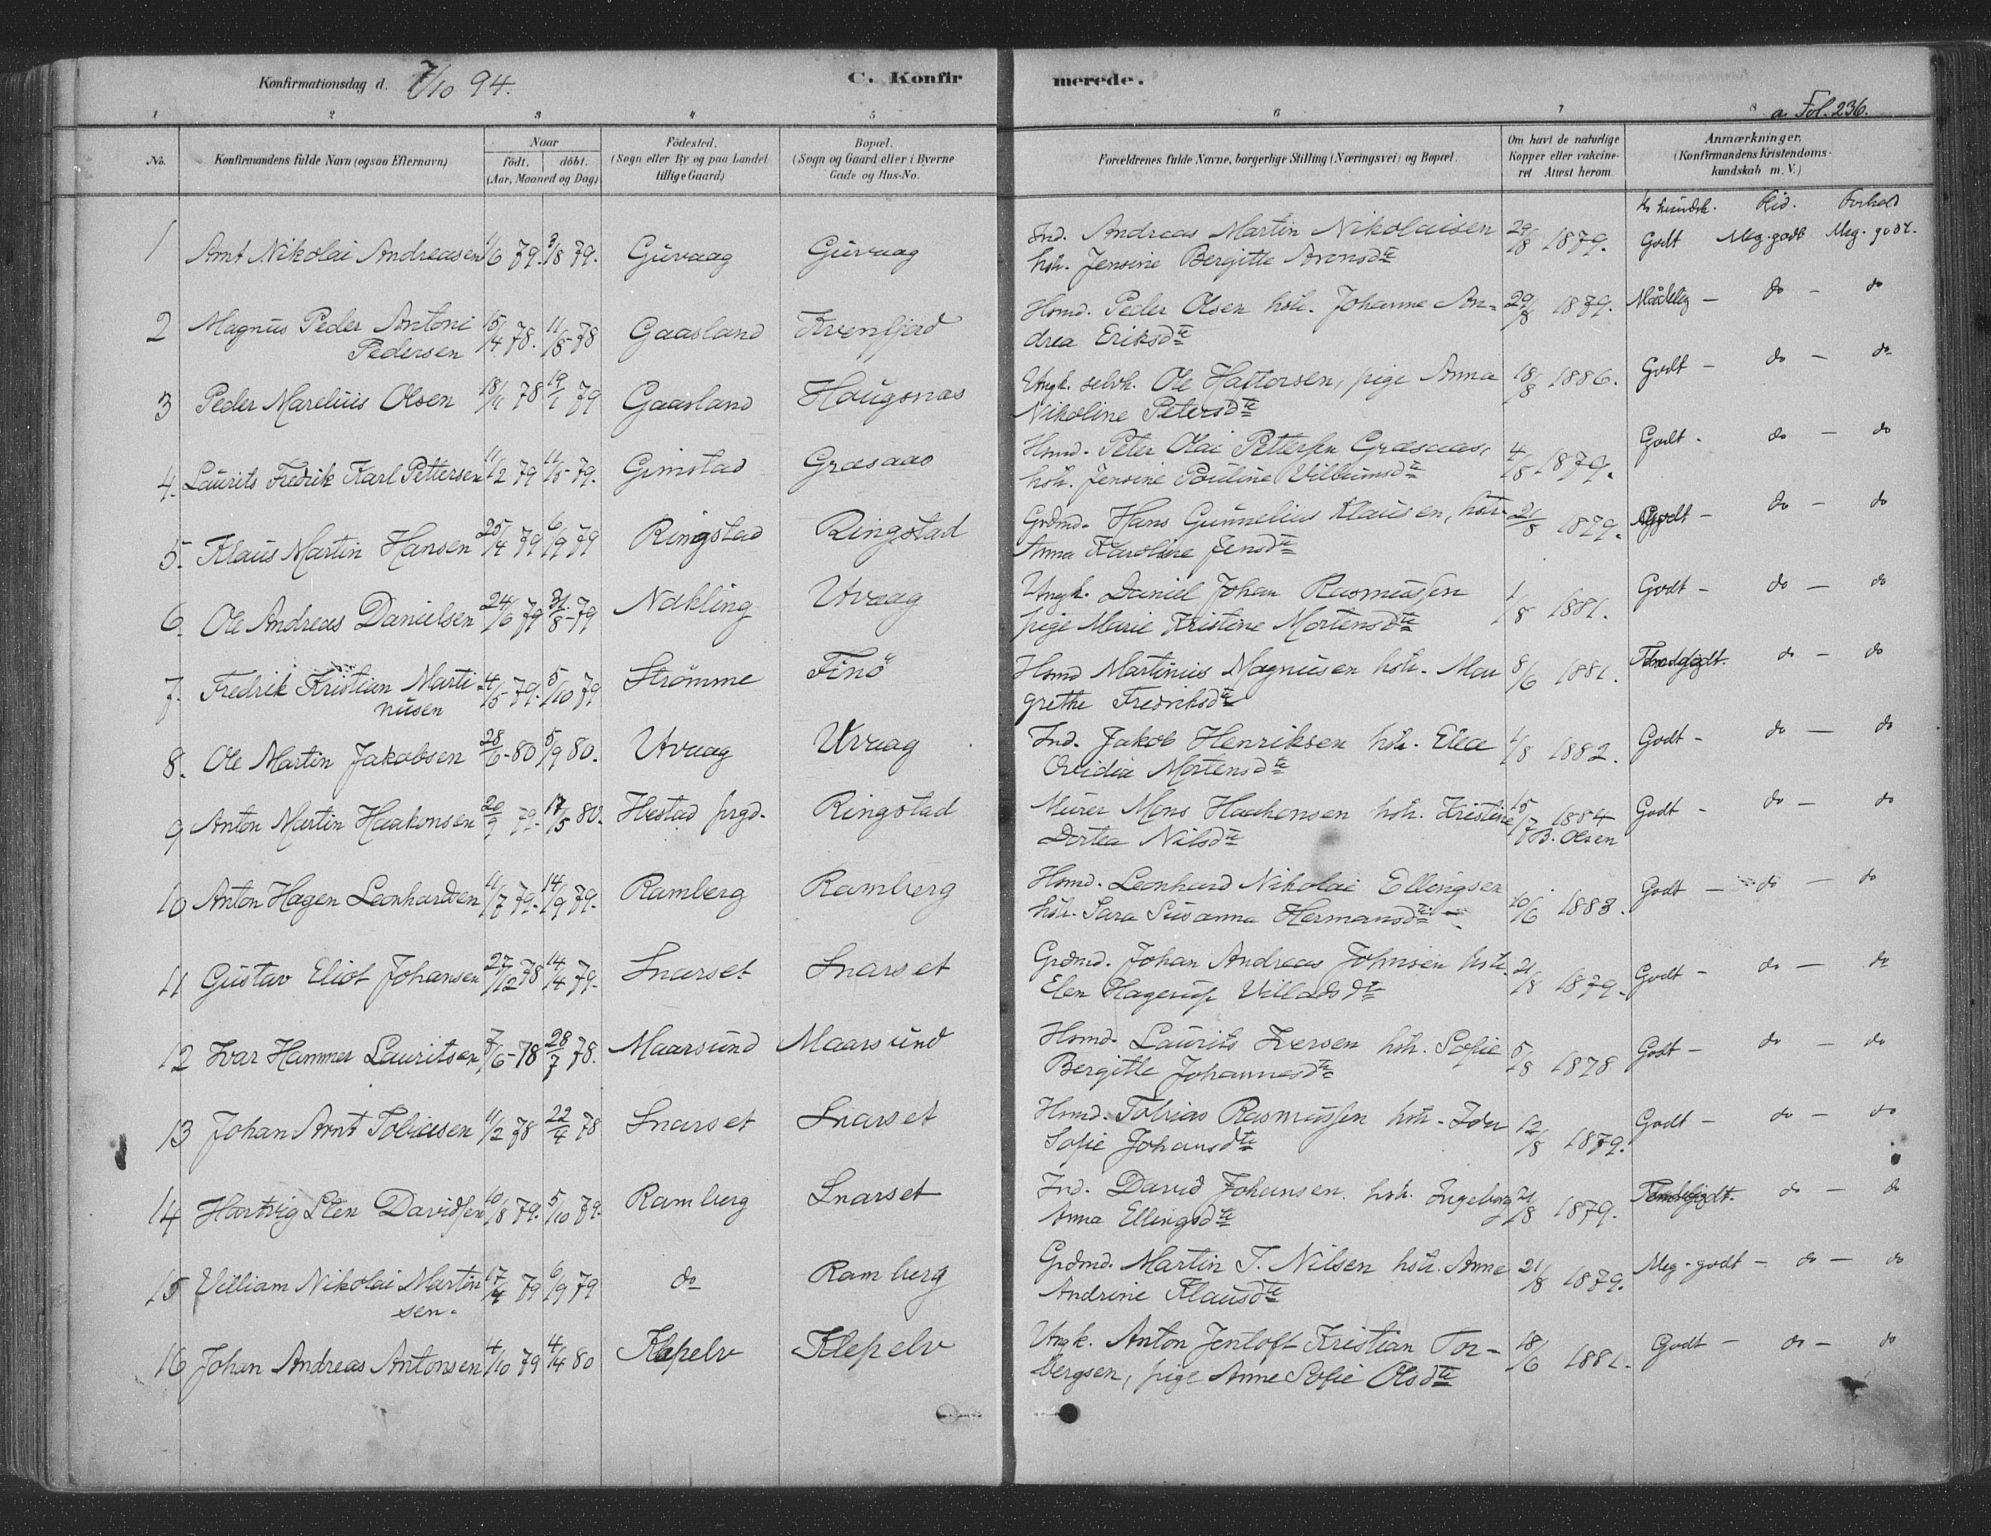 Konfirmationsdag d. 7/10 94.
C. Konfirmerede.
a Fol. 236.
1 2 3 4 5 6 7 8
No.
Konfirmandens fulde Navn (ogsaa Efternavn)
Naar
födt. döbt.
(Aar, Maaned og Dag)
Födested.
(Sogn eller By og paa Landet
tillige Gaard)
Bopæl.
(Sogn og Gaard eller i Byerne
Gade og Hus-No.
Forældrenes fulde Navne, borgerlige Stilling (Næringsvei) og Bopæl.
Om havt de naturlige
Kopper eller vakcine-
ret Attest herom
Anmærkninger.
(Konfirmandens Kristendoms-
kundskab m. V.)
Kr kundsk. Flid. Forhold
1 Arnt Nikolai Andreasen 1/6 79. 3/8 79. Guvaag Guvaag Ind. Andreas Martin Nikolaisen 29/8 1879. Godt Meg. godt Meg. godt.
hstr. Jensine Bergitte Arensdtr
2 Magnus Peder Antoni 15/4 78. 11/8 78 Gaasland Kvenfjord Husmd. Peder Olsen hstr. Johanne An- 29/8 1879. Mådelig — do — do
Pedersen drea Eriksdtr
3 Peder Marelius Olsen 18/9 78 19/1 79 Gaasland Haugsnas Ungk. selvh. Ole Hattorsen, pige Anna 18/8 1886. Godt — do — do
Nikoline Petersdtr
4. Laurits Fredrik Karl Pettersen 11/2 79 11/5 79. Gimstad Græsaas Husmd. Peter Olai Pettersen Græsaas, 4/8 1879. Godt. do — do
hstr. Jensine Pauline Vilhumsdtr
5. Klaus Martin Hansen 25/4 79 6/9 79 Ringstad Ringstad Grdmd. Hans Gunnelius Klausen, hstr 21/8 1879. Godt — do — do
Anna Karoline Jensdtr
6. Ole Andreas Danielsen 24/6 79 31/8 79 Nakling Uvaag Ungk. Daniel Johan Rasmussen 1/8 1881. Godt — do — do
pige Marie Kristine Mortensdtr
7. Fredrik Kristian Marti- 4/5 79. 5/10 79 Strömme Finö Husmd Martinus Magnusen hstr. Mar 8/6 1881. do — do
nusen grethe Fredriksdtr
8. Ole Martin Jakobsen 28/6 80 5/9 80. Uvaag Uvaag Ind. Jakob Henriksen hstr. Elea 1/8 1882. Godt — do — do
Ovidia Mortensdtr
9 Anton Martin Haakonsen 20/9 79. 17/5 80. Hestad prgd. Ringstad Murer Mons Haakonsen hstr. Kristine 15/7 1884 Godt — do — do
Dortea Nilsdtr B. Olsen
10 Anton Hagen Leonhardsen 11/7 79. 14/9 79. Ramberg Ramberg Husmd. Leonhard Nikolai Ellingsen 10/6 1883. Godt — do — do
hstr. Sara Susanna Hermansdtr
11 Gustav Eliot Johansen 27/12 78 14/4 79. Snarset Snarset Grdmd. Johan Andreas Johnsen hstr. 21/8 1879. Godt — do — do
Elen Hagerup Villadsdtr
12 Ivar Hammer Lauritsen 7/6 78 28/7 78. Maarsund Maarsund Husmd. Laurits Iversen hstr. Sofie 5/8 1878 Godt — do — do
Bergitte Johannesdtr
13 Johan Arnt Tobiasen 11/2 78 22/4 78 Snarset Snarset Husmd. Tobias Rasmussen hstr. Ida 12/8 1879. Godt — do — do
Sofie Johansdtr
14 Hartvig Sten Davidsen 10/8 79. 5/10 79. Ramberg Snarset Ind. David Johansen hstr. Ingeborg 21/8 1879. do — do
Anna Ellingsdtr
15 Villiam Nikolai Martin 17/4 79 6/9 79 do Ramberg Grdmd. Martin T. Nilsen hstr. Anne 21/8 1879. Meg. godt — do — do
sen. Andrine Klausdtr
16 Johan Andreas Antonsen 4/10 79 4/4 80 Klepelv Klepelv Ungk. Anton Jentoft Kristian Tor- 18/6 1881. Godt — do — do
bergsen, pige Anne Sofie Olsdtr